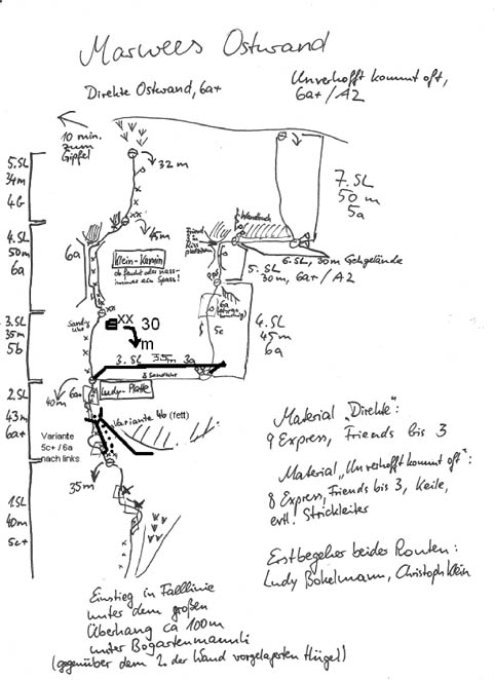 Marwees Ostwand
Direkte Ostwand, 6a+
Unverhofft kommt oft,
6a+/A2
10 min.
zum
Gipfel
5.SL
34m
4b
32m
7.SL
50m
5a
4.SL
50m
6a
6a
45m
Klein-Kamin
ob feucht oder nass-
immer ein Spass!
Wandbuch
6.SL, 30m Gehgelände
5.SL
30m, 6a+/A2
3.SL
35m
5b
Sanduhr
xx 30
m
6a
5c
4.SL
45m
6a
3.SL 35m 3a
3 Sanduhren
2.SL
43m
6a+
40m
6a+
Ludy-Platte
Variante 4b (fett)
Variante
5c+ / 6a
nach links
35m
1.SL
40m
5c+
Material „Direkte":
9 Express, Friends bis 3
Material „Unverhofft kommt oft":
8 Express, Friends bis 3, Keile,
evtl. Strickleiter
Erstbegeher beider Routen:
Ludy Bokelmann, Christoph Klein
Einstieg in Falllinie
unter dem großen
Überhang ca 100m
unter Bogartenmannli
(gegenüber dem 2. der Wand vorgelagerten Hügel)